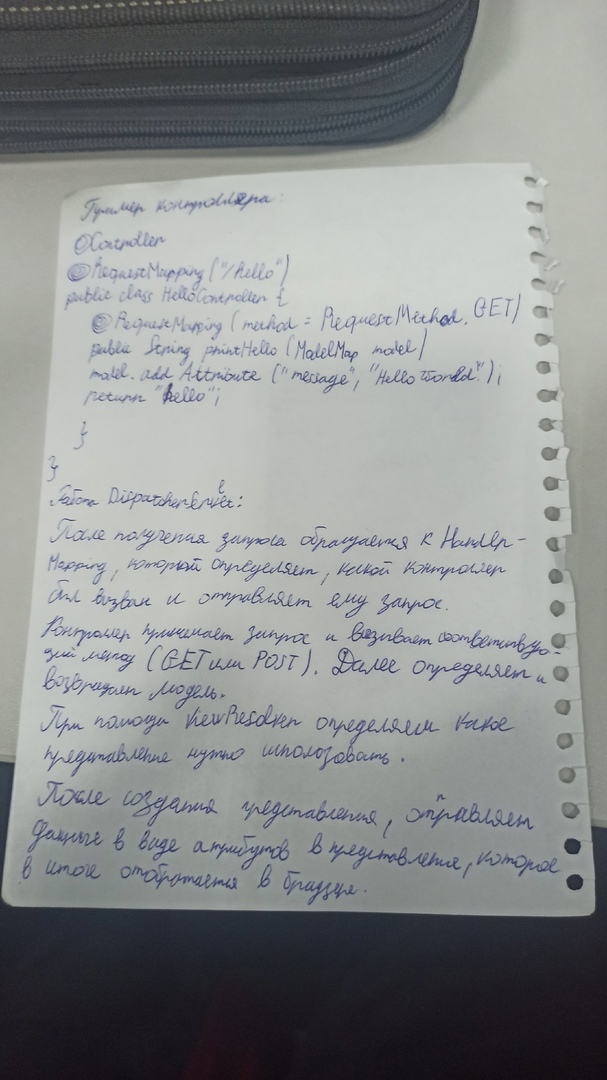 Пример контроллера:
@Controller
@RequestMapping ("/hello")
public class HelloController {
@RequestMapping (method = RequestMethod. GET)
public String printHello (ModelMap model)
model. add Attribute ("message", "Hello World!");
return "hello";
}
}
Работа DispatcherServlet:
После получения запроса обращается к Handler-
Mapping, который определяет, какой контроллер
был вызван и отправляет ему запрос.
Контроллер принимает запрос и вызывает соответствую-
щий метод (GET или POST). Далее определяет и
возвращает модель.
При помощи ViewResolver определяем какое
представление нужно использовать.
После создания представления, отправляет
данные в виде атрибутов в представления, которое
в итоге отображается в браузере.